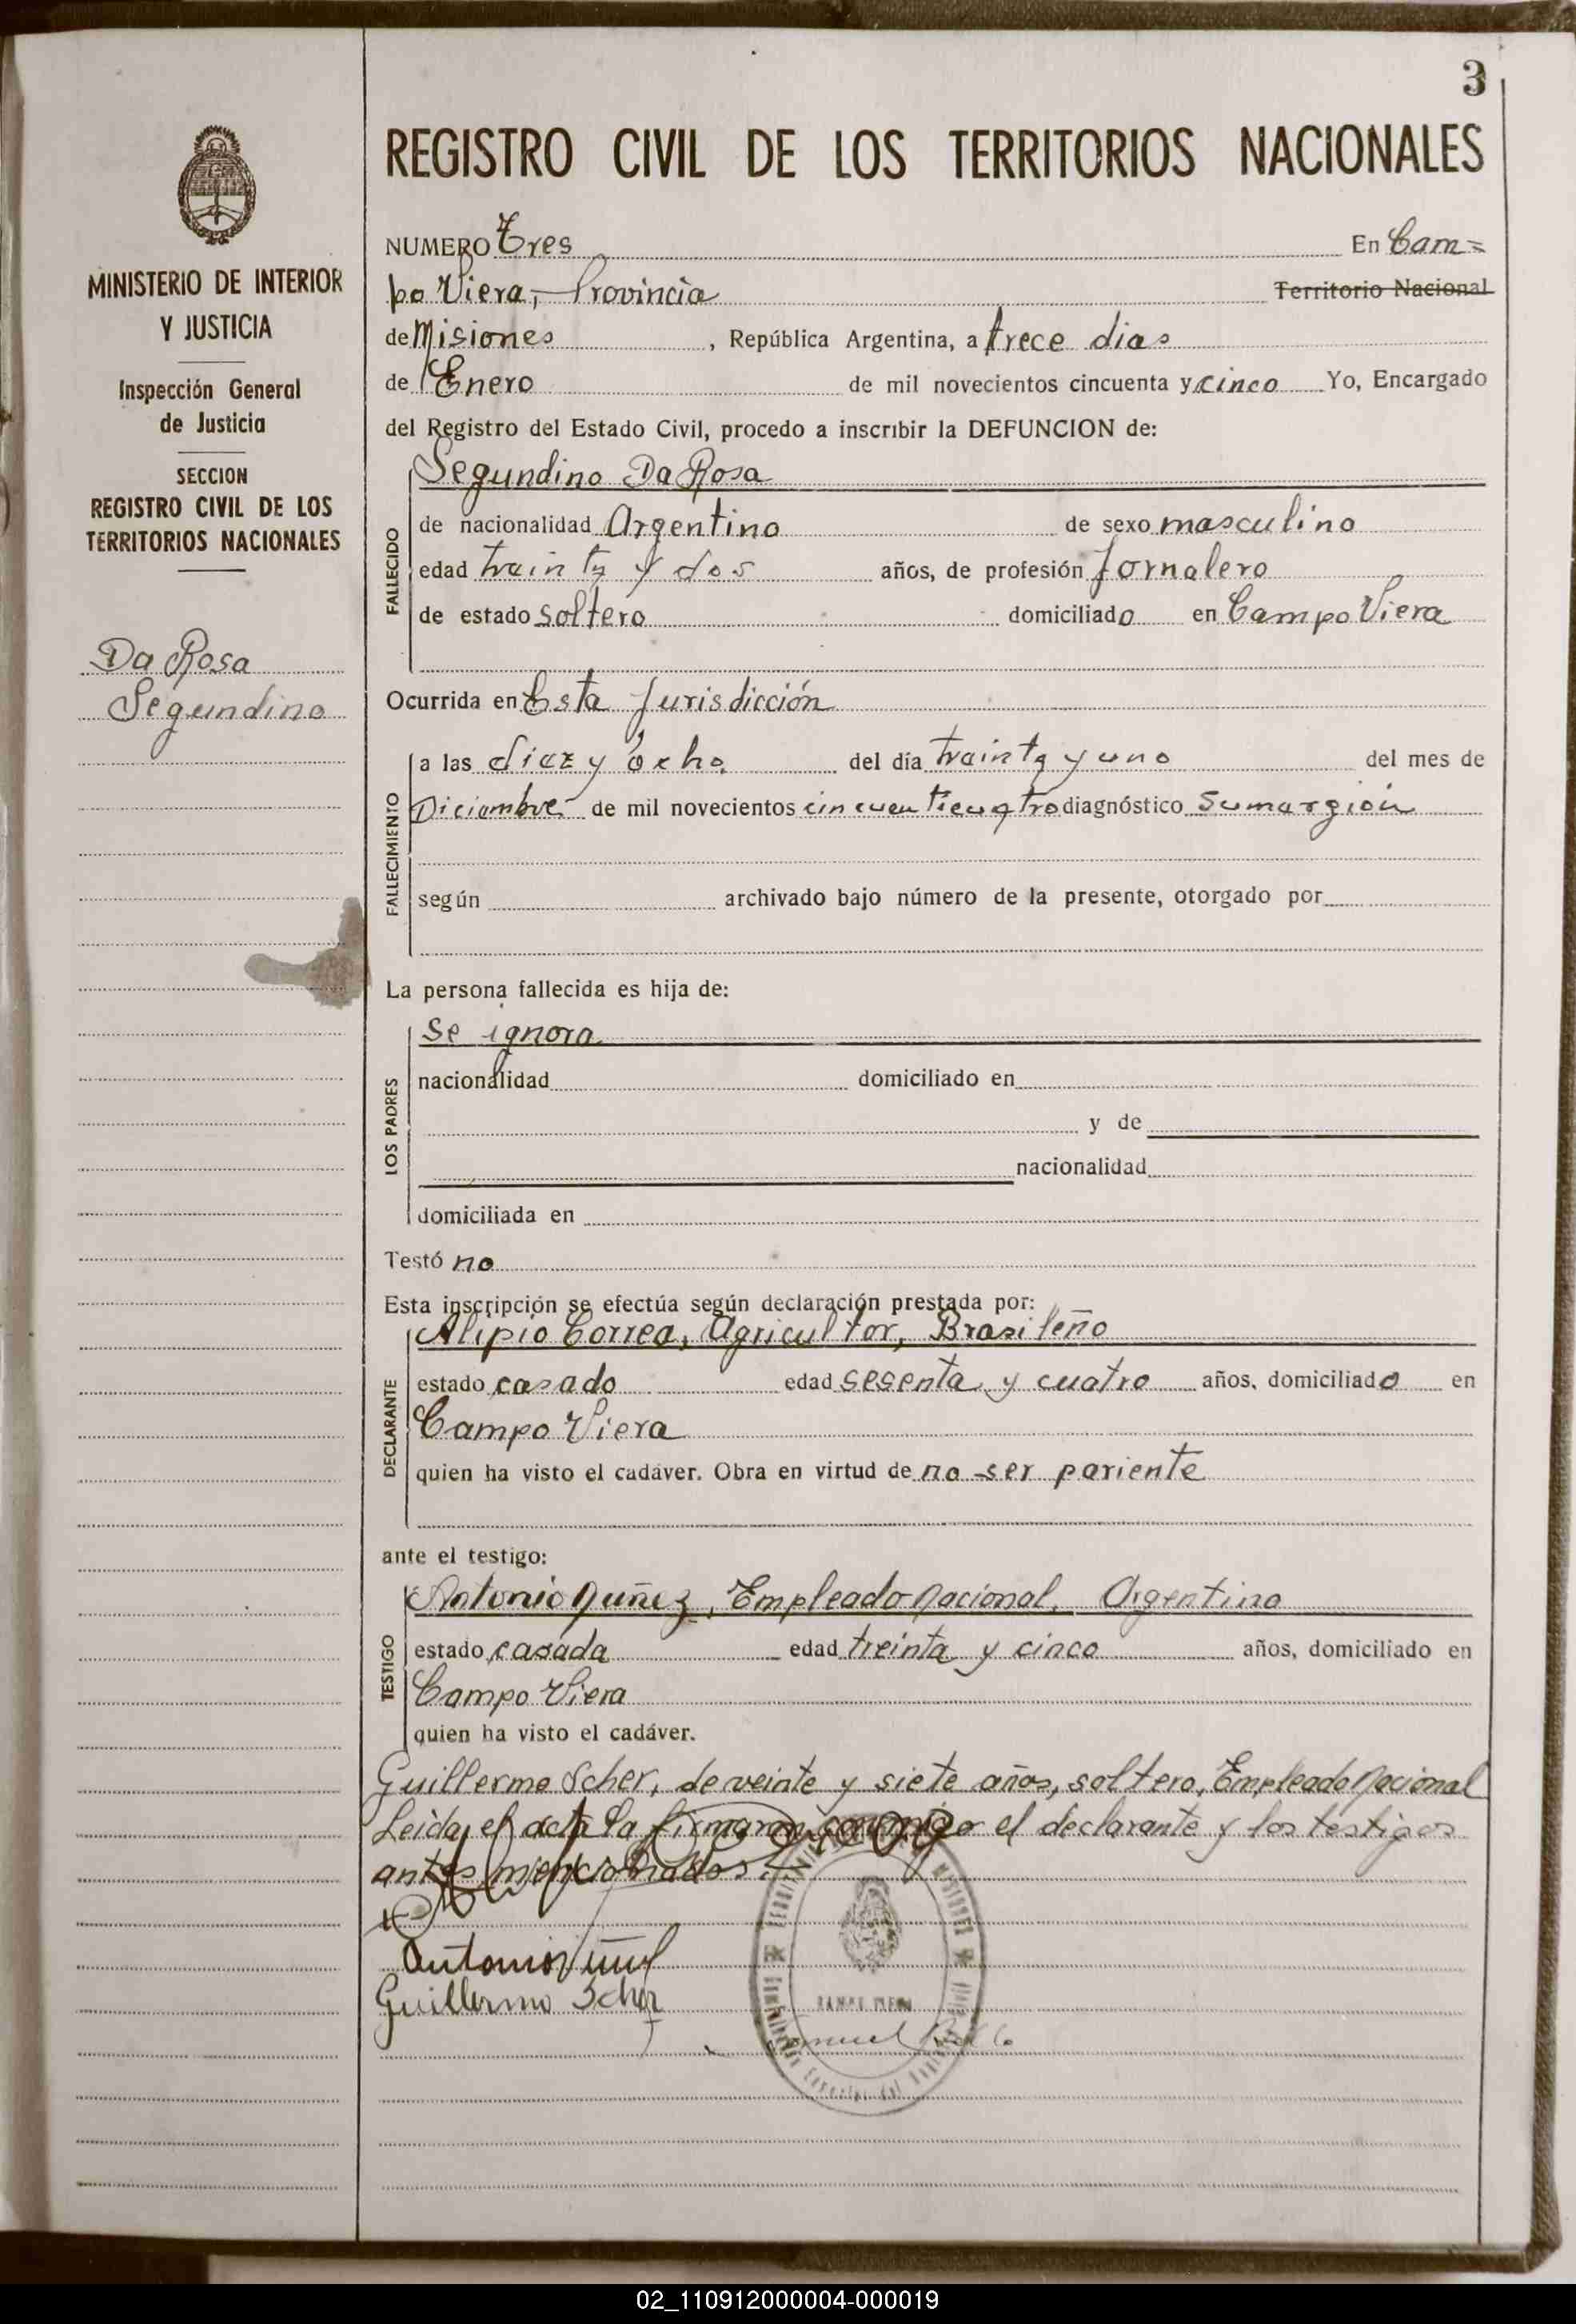 3
REGISTRO CIVIL DE LOS TERRITORIOS NACIONALES
MINISTERIO DE INTERIOR
Y JUSTICIA
Inspección General
de Justicia
SECCION
REGISTRO CIVIL DE LOS
TERRITORIOS NACIONALES
Da Rosa
Segundino
NUMERO Tres En Cam=
po Viera, Provincia Territorio Nacional
de Misiones, República Argentina, a trece dias
de Enero de mil novecientos cincuenta y cinco Yo, Encargado
del Registro del Estado Civil, procedo a inscribir la DEFUNCION de:
FALLECIDO
Segundino Da Rosa
de nacionalidad Argentino de sexo masculino
edad trainta y dos años, de profesión Jornalero
de estado soltero domiciliado en Campo Viera
Ocurrida en Esta Jurisdicción
FALLECIMIENTO
a las diez y ocho del día trainta y uno del mes de
Diciembre de mil novecientos cincuenticuatro diagnóstico Sumargión
según archivado bajo número de la presente, otorgado por
La persona fallecida es hija de:
LOS PADRES
Se ignora
nacionalidad domiciliado en
y de
nacionalidad
domiciliada en
Testó no
Esta inscripción se efectúa según declaración prestada por:
DECLARANTE
Alipio Correa, Agricultor, Brasileño
estado casado edad sesenta y cuatro años, domiciliado en
Campo Viera
quien ha visto el cadáver. Obra en virtud de no ser pariente
ante el testigo:
TESTIGO
Antonio Nuñez, Empleado Nacional, Argentino
estado casada edad treinta y cinco años, domiciliado en
Campo Viera
quien ha visto el cadáver.
Guillermo Scher, de veinte y siete años, soltero, Empleado Nacional
Leida el acta la firmaran conmigo el declarante y los testigos
antes mencionados.
Antonio Nuñez
Guillermo Scher
02_110912000004-000019